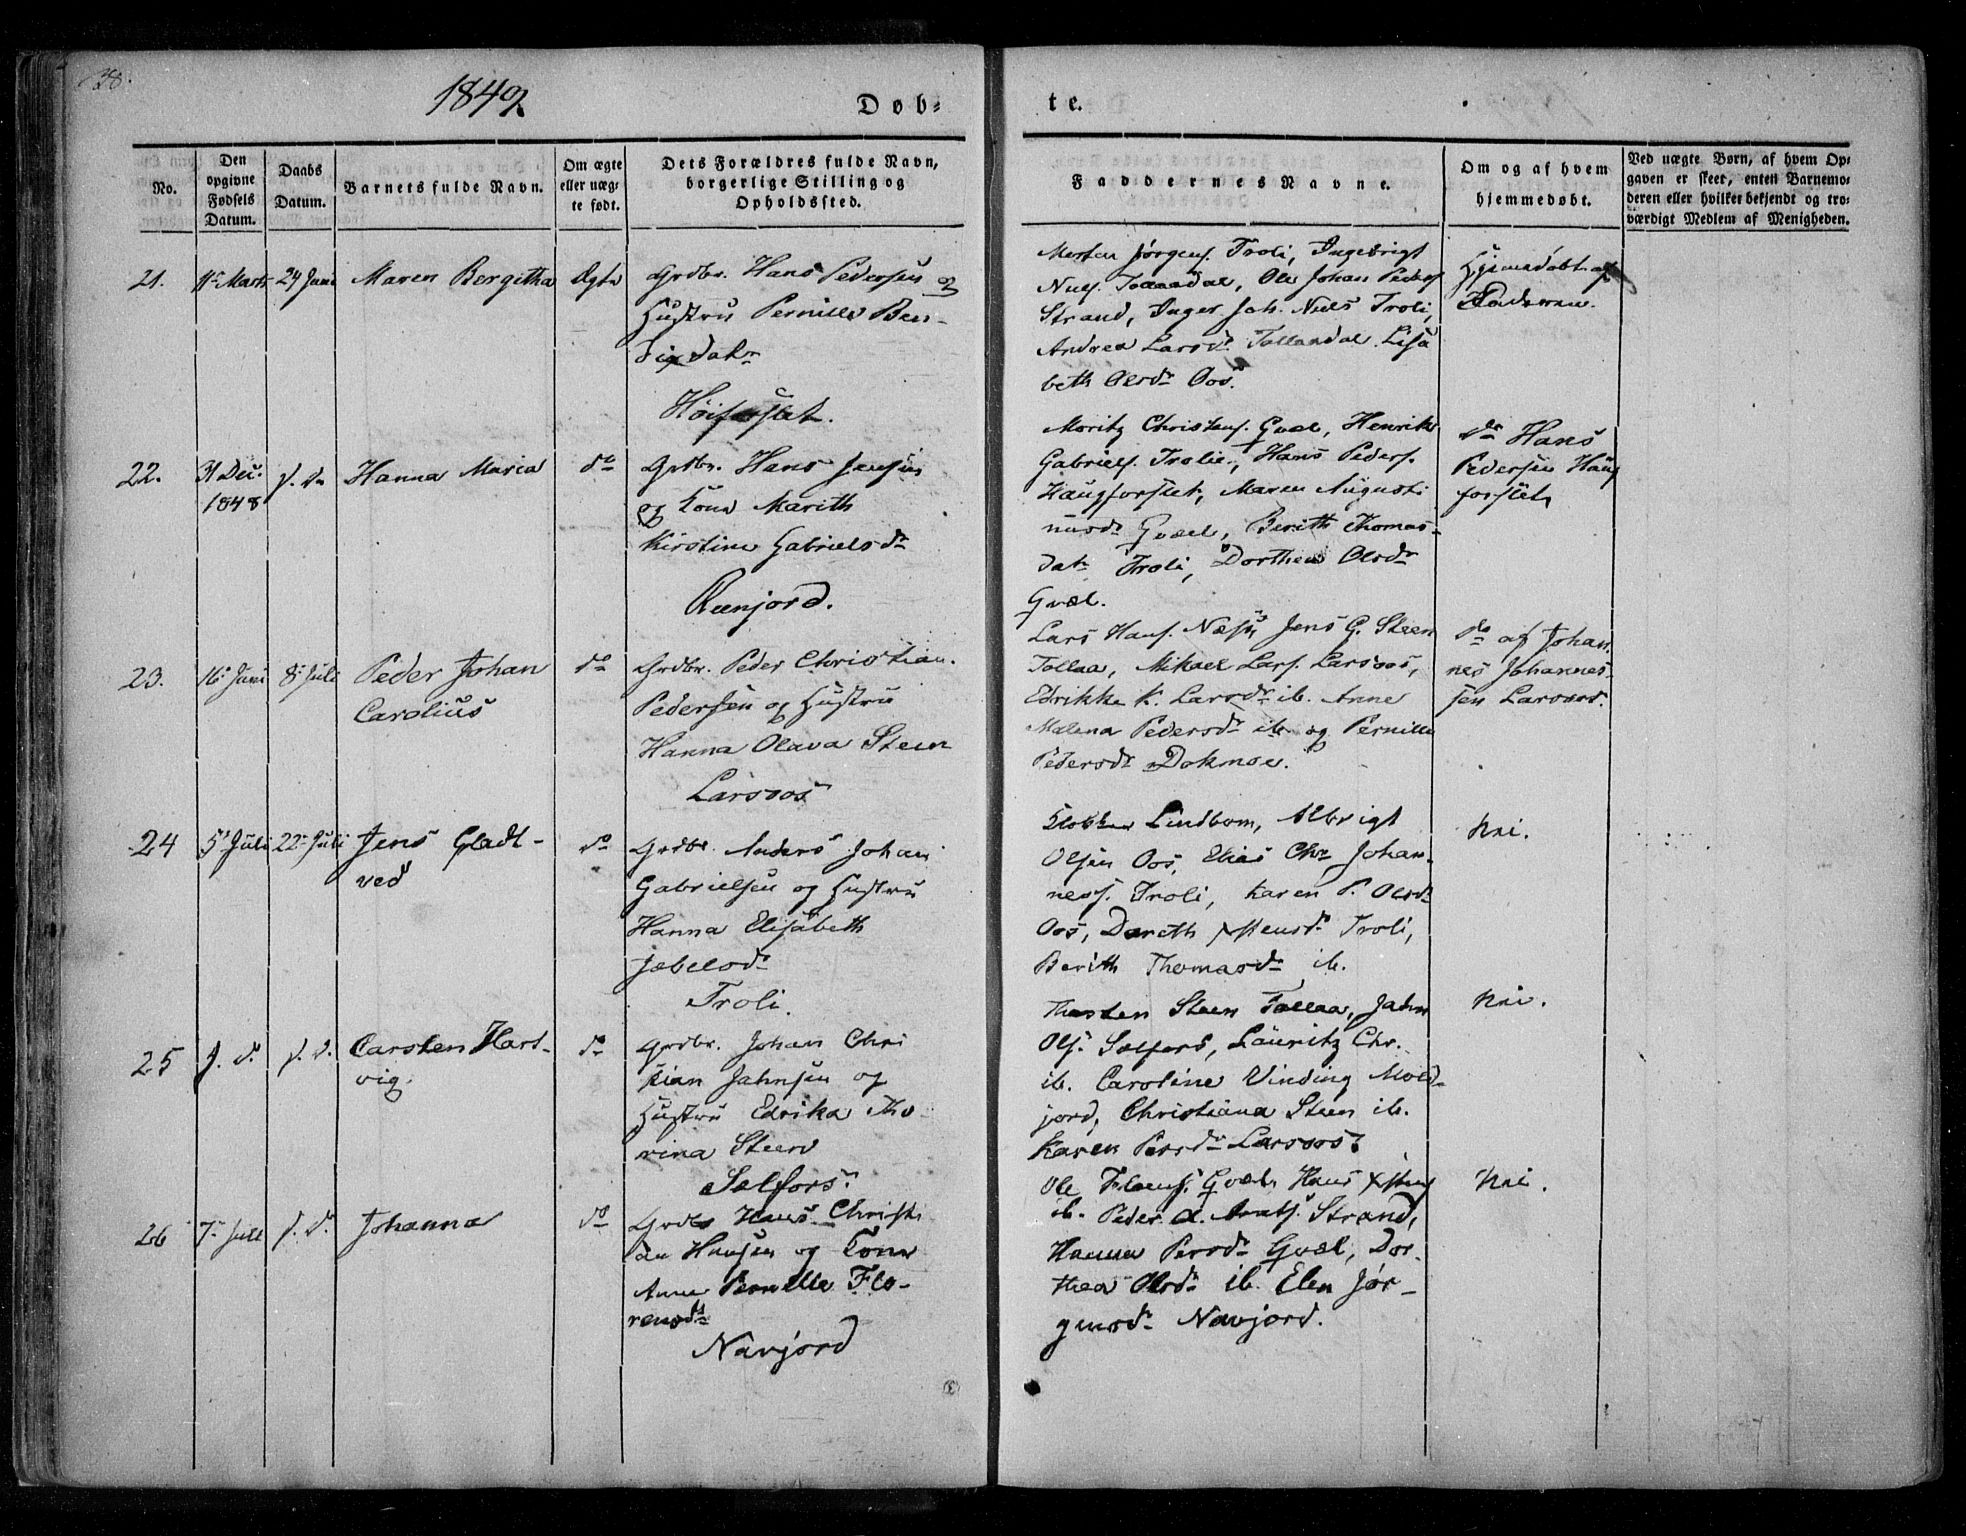 38.
1849.
Døb-
te.
No.
Den
opgivne
Fødsels
Datum.
Daabs
Datum.
Barnets fulde Navn.
Om ægte
eller uæg-
te født.
Dets Forældres fulde Navn,
borgerlige Stilling og
Opholdssted.
Faddernes Navne.
Om og af hvem
hjemmedøbt.
Ved uægte Børn, af hvem Op-
gaven er skeet, enten Barnemo-
deren eller hvilket bekjendt og tro-
værdigt Medlem af Menigheden.
21.
11te Marts
24 Juni
Maren Bergitha
Ægte
Grdbr. Hans Pedersen og
Hustru Pernille Ben-
Høiforslet.
Morten Jørgens. Troli, Ingebrigt
Niels. Tollaadal, Ole Johan Peders.
Strand, Inger Joh. Niels Troli,
Andrea Larsdr Tollaadal Lisa
beth Olsdr Oos.
Hjemmedøbt af
Faderen.
22.
31 Dec.
1848
s. d.
Hanna Maria
do
Grdbr. Hans Jensen
og Kone Marith
Kirstine Gabrielsdr
Reenjord.
Moritz Christens. Qvæl, Henrik
Gabriels. Trolie, Hans Peders.
Haugforslet, Maren Augusti
nusdr Qvæl, Berith Thomas-
datr Troli, Dorthea Olsdr
Qvæl.
do Hans
Pedersen Haug
forslet
23.
16 Juni
8 Juli
Peder Johan
Carolius
do
Grdbr. Peder Christian
Pedersen og Hustru
Hanna Olava Steen
Larsoos
Lars Hans. Næss, Jens G. Steen
Tollaa, Mikael Lars. Larsoos,
Edrikke K. Larsdr ib. Anne
Malena Pedersdr ib. og Pernille
Pedersdr Dokmoe.
do af Johan
nes Johannes-
sen Larsoos.
24
5 Juli
22 Juli
Jens Gladt-
ved
do
Grdbr. Anders Johan
Gabrielsen og Hustru
Hanna Elisabeth
Jæbelsdr
Troli.
Klokker Lindbom, Albrigt
Olsen Oos, Elias Chr. Johan-
ness. Troli, Karen P. Olsdr
Oos, Dareth Xstensdr Troli,
Berith Thomasdr ib.
Nei.
25
s. d.
s. d.
Carsten Hart-
vig.
do
Grdbr. Johan Chri
stian Jahnsen og
Hustru Edrika Tho-
rina Steen
Sælfors.
Steen Tollaa, Jahn
Ols. Sælfors, Lauritz Chr.
ib. Caroline Vinding Mold-
jord, Christiana Steen ib.
Karen Persdr Larsoos.
Nei.
26
7 Juli
s. d.
Johanna
do
Grdbr Hans Christi
an Hansen og Kone
Anne Pernille Flo-
rensdr
Navjord
Ole Flens. Qvæl, Hans Xstens
ib. Peder A. Arnts. Strand,
Hanna Persdr Qvæl, Dor-
thea Olsdr ib. Elen Jør-
gensdr Navjord.
Nei.